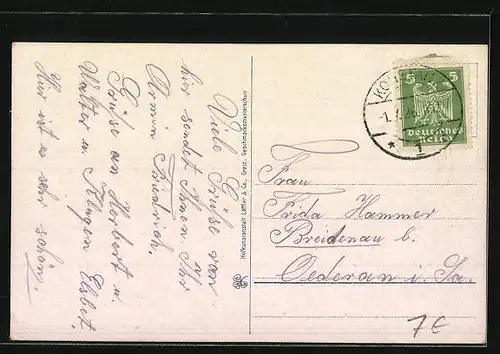 Viele Grüße von
hier sendet Ihnen Ihr
Armin Friedrich.
Grüße an Herbert u.
Walter u. Elsbet.
Hier ist es sehr schön.
Hofkunstanstalt Löffler & Co., Greiz. Geschmacksmusterschutz
5 5
Deutsches
Reich
* 1
Frau
Frida Hammer
Breitenau b.
Oederan i. Sa.
7€